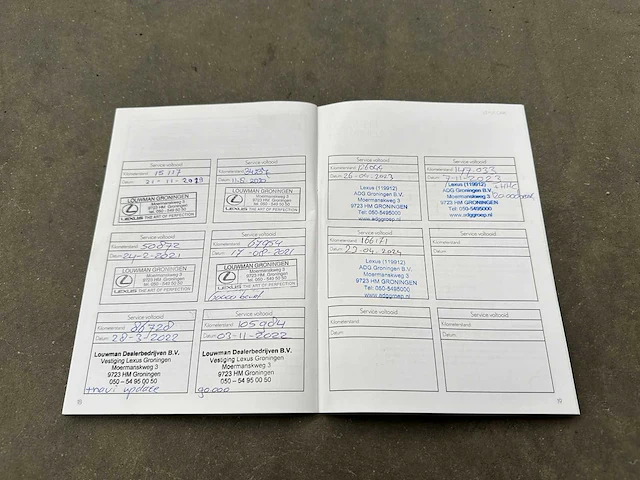 Service voltooid
Kilometerstand 15 117
Datum 21-11-2019
LOUWMAN GRONINGEN
Moermanskweg 3
9723 HM Groningen
tel. 050 - 549 50 50
LEXUS THE ART OF PERFECTION
Service voltooid
Kilometerstand
Datum
LOUWMAN GRONINGEN
Moermanskweg 3
9723 HM Groningen
tel. 050 - 549 50 50
LEXUS THE ART OF PERFECTION
Service voltooid
Kilometerstand 50872
Datum 24-2-2021
LOUWMAN GRONINGEN
Moermanskweg 3
9723 HM Groningen
tel. 050 - 549 50 50
LEXUS THE ART OF PERFECTION
Service voltooid
Kilometerstand 67954
Datum 17-08-2021
LOUWMAN GRONINGEN
Moermanskweg 3
9723 HM Groningen
tel. 050 - 549 50 50
LEXUS THE ART OF PERFECTION
Service voltooid
Kilometerstand 86728
Datum 28-3-2022
Louwman Dealerbedrijven B.V.
Vestiging Lexus Groningen
Moermanskweg 3
9723 HM Groningen
050 – 54 95 00 50
+navi update
Service voltooid
Kilometerstand 105984
Datum 03-11-2022
Louwman Dealerbedrijven B.V.
Vestiging Lexus Groningen
Moermanskweg 3
9723 HM Groningen
050 – 54 95 00 50
90.000
18
Service voltooid
Kilometerstand
Datum 26-04-2023
Lexus (119912)
ADG Groningen B.V.
Moermanskweg 3
9723 HM GRONINGEN
Tel: 050-5495000
www.adggroep.nl
Service voltooid
Kilometerstand 147.033
Datum 7-11-2023
Lexus (119912)
ADG Groningen B.V.
Moermanskweg 3
9723 HM GRONINGEN
Tel: 050-5495000
www.adggroep.nl
Service voltooid
Kilometerstand 166171
Datum 22-04-2024
Lexus (119912)
ADG Groningen B.V.
Moermanskweg 3
9723 HM GRONINGEN
Tel: 050-5495000
www.adggroep.nl
Service voltooid
Kilometerstand
Datum
Service voltooid
Kilometerstand
Datum
Service voltooid
Kilometerstand
Datum
19